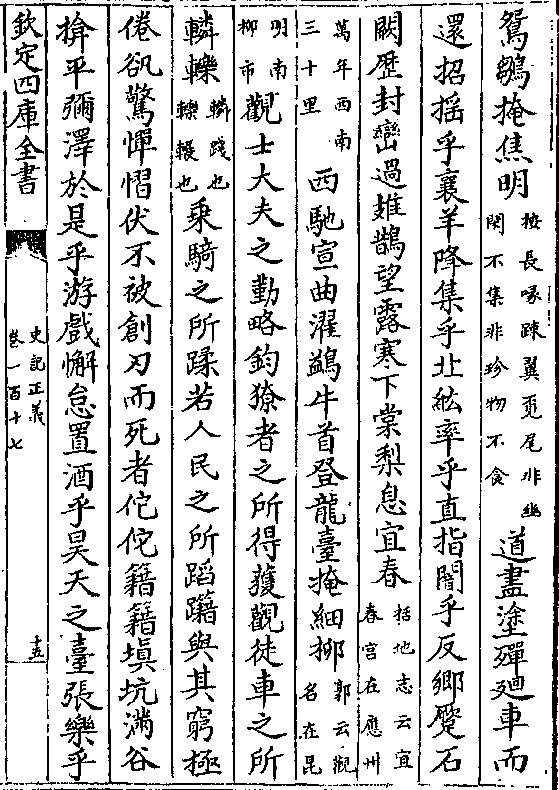 鵷鶵掩焦明按長喙疎翼員尾非幽閑不集非珍物不食道盡塗殫廻車而
還招搖乎襄羊降集乎北紘率乎直指闇乎反鄉蹷石
闕歷封巒過䧿鵲望露寒下棠梨息宜春括地志云宜春宫在應州
萬年西南三十里西馳宣曲濯鷁牛首登龍臺掩細柳郭云觀名在昆
明南柳市觀士大夫之勤略鈞獠者之所得獲觀徒車之所
轔轢轔踐也轢輾也乗騎之所蹂若人民之所蹈躤與其窮極
倦㕁驚憚慴伏不被創刃而死者佗佗籍籍填坑滿谷
揜平彌澤於是乎游戲懈怠置酒乎昊天之臺張樂乎
欽定四庫全書
史記正義
卷一百十七
十五